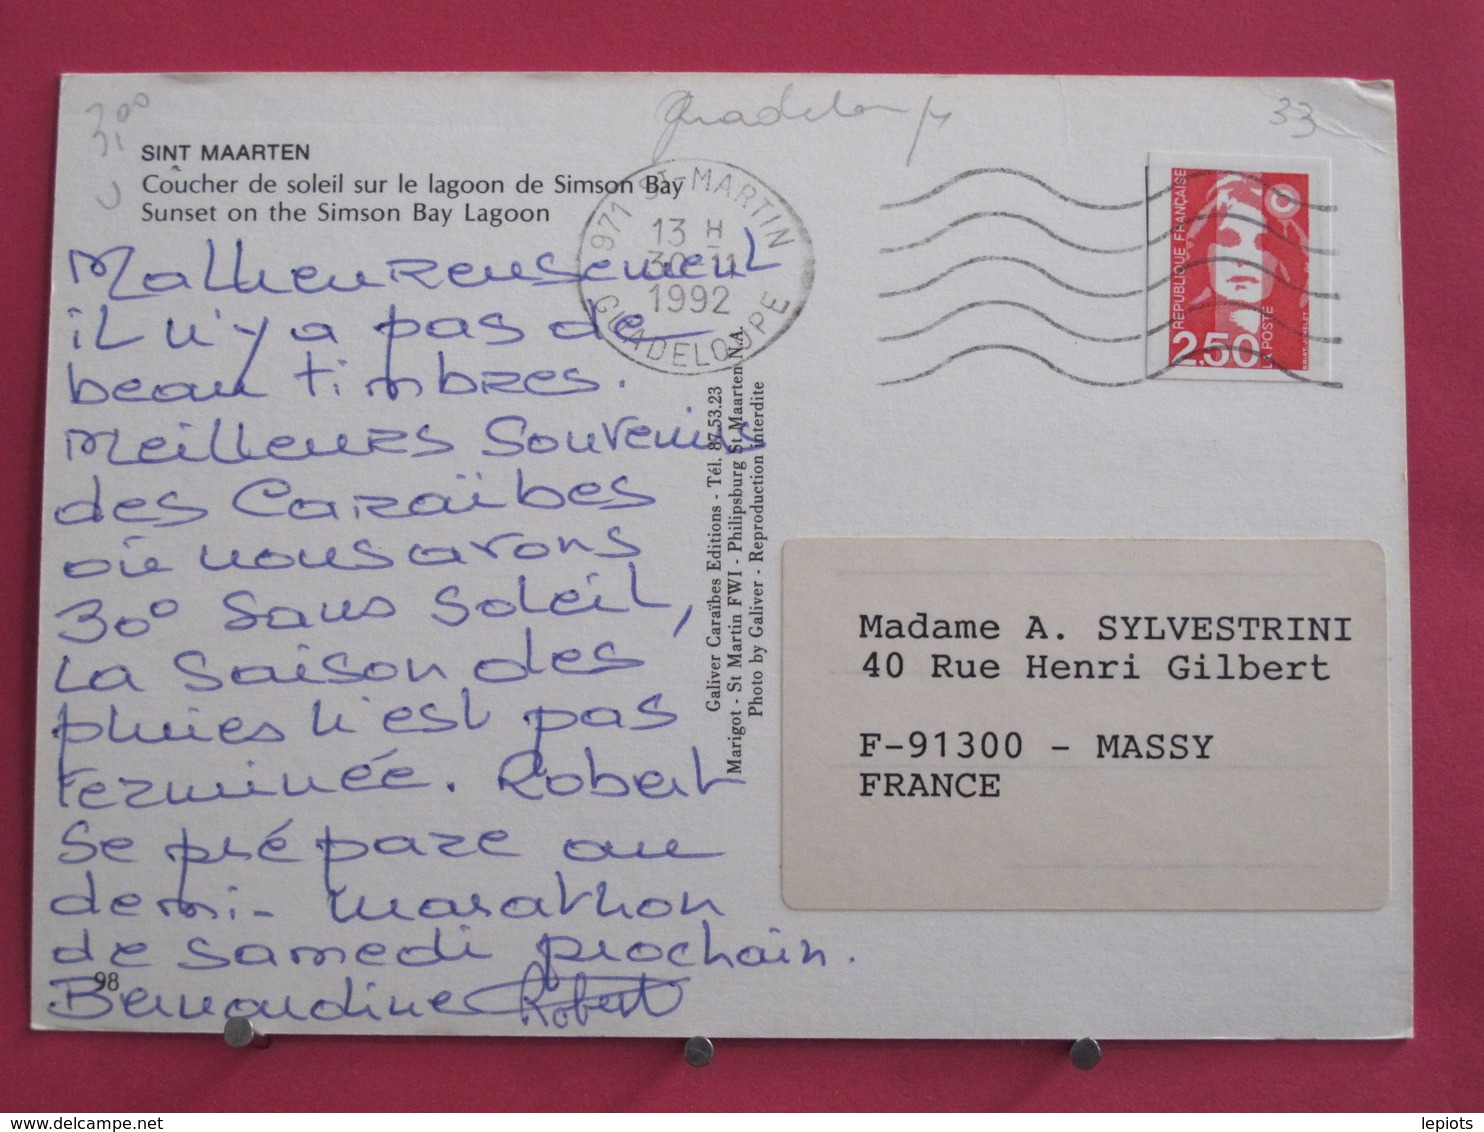 33
SINT MAARTEN
Coucher de soleil sur le lagoon de Simson Bay
Sunset on the Simson Bay Lagoon
971 ST-MARTIN
13 H
1992
GUADELOUPE
RÉPUBLIQUE FRANÇAISE
2,50
LA POSTE
Malheureusement
il n'y a pas de
beau timbres.
Meilleurs Souvenirs
des Caraïbes
où nous avons
30° sans soleil,
La saison des
pluies n'est pas
terminée. Robert
se prépare au
demi-marathon
de samedi prochain.
Bernardine Robert
98
Galiver Caraïbes Editions - Tél. 87.53.23
Marigot - St Martin FWI - Philipsburg St Maarten N.A.
Photo by Galiver - Reproduction interdite
Madame A. SYLVESTRINI
40 Rue Henri Gilbert
F-91300 - MASSY
FRANCE
delcampe.net
lepiots